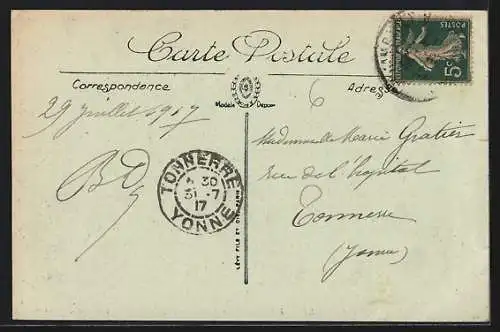 Carte Postale
Correspondance
Adresse
Modèle Déposé
29 juillet 1917
BD
TONNERRE
30
31-7
17
YONNE
POSTES
5c
6
Mademoiselle Marie Gratier
rue de l'hopital
Tonnerre
(Yonne)
LÉVY FILS ET CIE